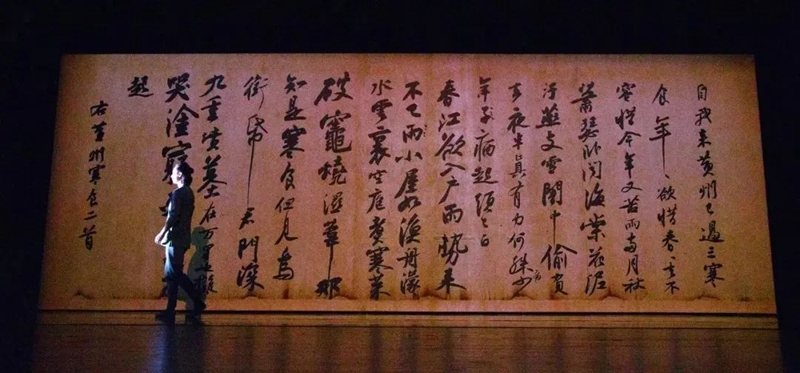 自我來黃州已過三寒
食年、欲惜春、去不
容惜今年又苦雨兩月秋
蕭瑟臥聞海棠花泥
汙燕支雪闇中偷負
去夜半真有力何殊少
年子病起頭已白
春江欲入戶雨勢來
不已雨小屋如漁舟濛
水雲裏空庖煮寒菜
破竈燒濕葦那
知是寒食但見烏
銜帋君門深
九重墳墓在万里也擬
哭塗窮
起
右黃州寒食二首